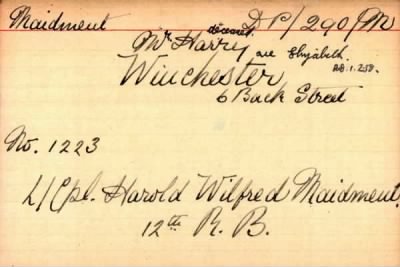 Maidment DP/290/M
Mr. Harry deceased see Elizabeth
RB.1.258.
Winchester
6 Back Street
No. 1223
L/Cpl. Harold Wilfred Maidment.
12th R. B.